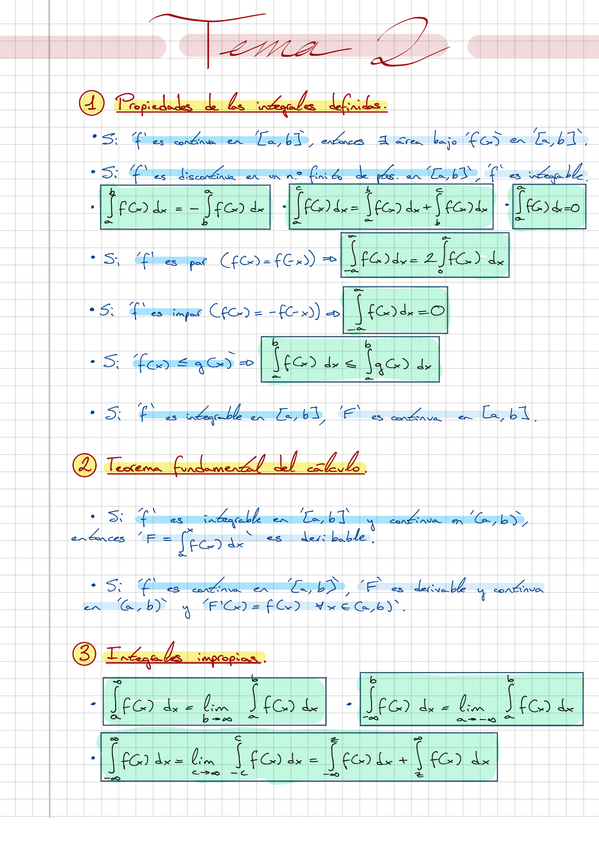 Tema 2
① Propiedades de las integrales definidas.
• Si 'f' es continua en '[a,b]', entonces ∃ área bajo 'f(x)' en '[a,b]'.
• Si 'f' es discontinua en un n.º finito de ptos. en '[a,b]', 'f' es integrable.
• ∫_a^b f(x) dx = - ∫_b^a f(x) dx • ∫_a^c f(x) dx = ∫_a^b f(x) dx + ∫_b^c f(x) dx • ∫_a^a f(x) dx = 0
• Si 'f' es par (f(x) = f(-x)) ⇒ ∫_{-a}^a f(x) dx = 2 ∫_0^a f(x) dx
• Si 'f' es impar (f(x) = -f(-x)) ⇒ ∫_{-a}^a f(x) dx = 0
• Si 'f(x) ≤ g(x)' ⇒ ∫_a^b f(x) dx ≤ ∫_a^b g(x) dx
• Si 'f' es integrable en [a,b], 'F' es continua en [a,b].
② Teorema fundamental del cálculo.
• Si 'f' es integrable en '[a,b]' y continua en '(a,b)',
entonces 'F = ∫_a^x f(x) dx' es deribable.
• Si 'f' es continua en '[a,b]', 'F' es derivable y continua
en '(a,b)' y 'F'(x) = f(x) ∀x ∈ (a,b)'.
③ Integrales impropias.
• ∫_a^∞ f(x) dx = lim_{b→∞} ∫_a^b f(x) dx • ∫_{-∞}^b f(x) dx = lim_{a→-∞} ∫_a^b f(x) dx
• ∫_{-∞}^∞ f(x) dx = lim_{c→∞} ∫_{-c}^c f(x) dx = ∫_{-∞}^z f(x) dx + ∫_z^∞ f(x) dx